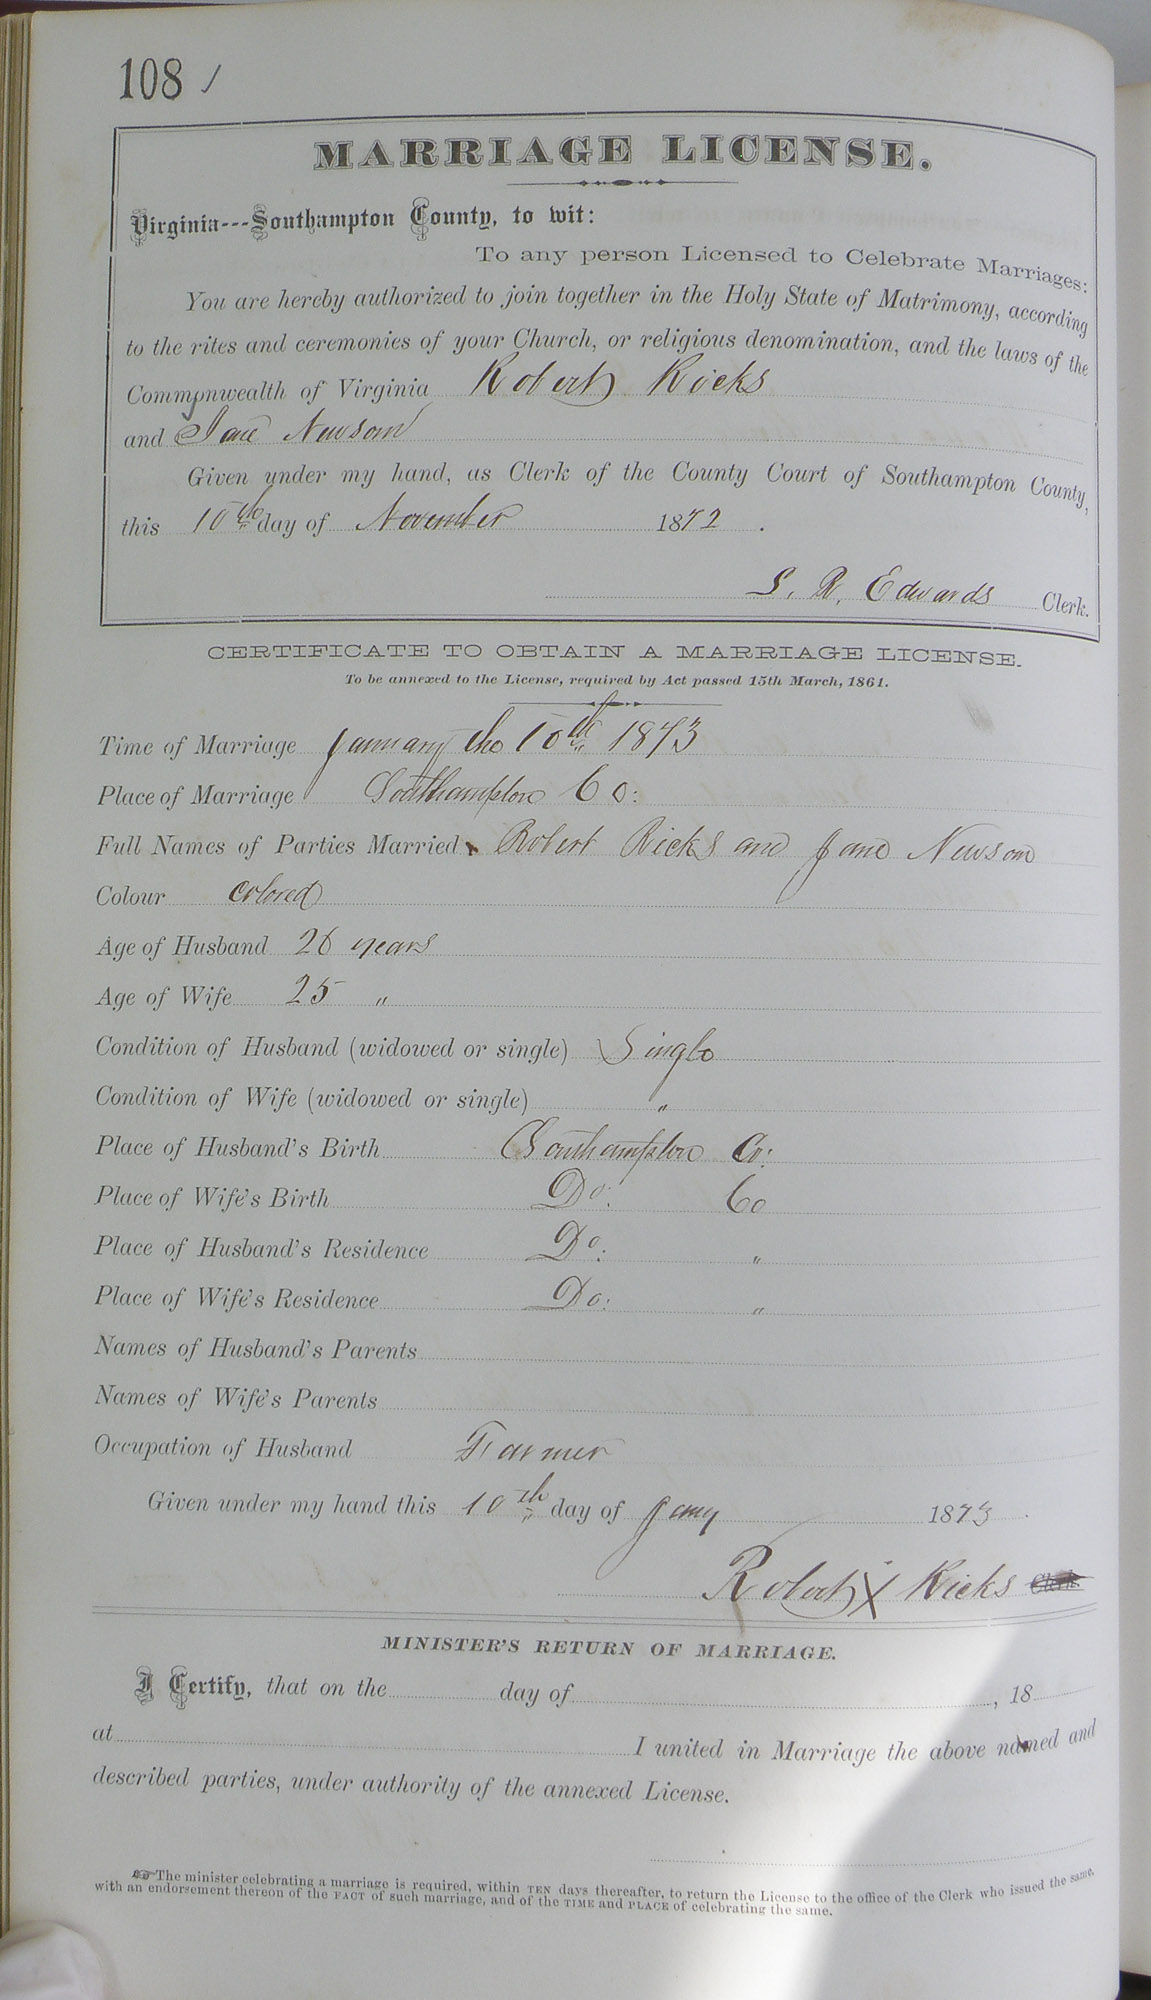 108 /
MARRIAGE LICENSE.
Virginia---Southampton County, to wit:
To any person Licensed to Celebrate Marriages:
You are hereby authorized to join together in the Holy State of Matrimony, according
to the rites and ceremonies of your Church, or religious denomination, and the laws of the
Commonwealth of Virginia Robert Ricks
and Jane Newsom
Given under my hand, as Clerk of the County Court of Southampton County,
this 10th day of November 1872 .
S. R. Edwards Clerk.
CERTIFICATE TO OBTAIN A MARRIAGE LICENSE.
To be annexed to the License, required by Act passed 15th March, 1861.
Time of Marriage January the 10th 1873
Place of Marriage Southampton Co:
Full Names of Parties Married Robert Ricks and Jane Newsom
Colour colored
Age of Husband 26 years
Age of Wife 25 "
Condition of Husband (widowed or single) Single
Condition of Wife (widowed or single) "
Place of Husband's Birth Southampton Co:
Place of Wife's Birth Do: Co
Place of Husband's Residence Do: "
Place of Wife's Residence Do: "
Names of Husband's Parents
Names of Wife's Parents
Occupation of Husband Farmer
Given under my hand this 10th day of Jany 1873
Robert X Ricks Clerk.
MINISTER'S RETURN OF MARRIAGE.
I Certify, that on the day of , 18
at I united in Marriage the above named and
described parties, under authority of the annexed License.
☞ The minister celebrating a marriage is required, within TEN days thereafter, to return the License to the office of the Clerk who issued the same,
with an endorsement thereon of the FACT of such marriage, and of the TIME and PLACE of celebrating the same.